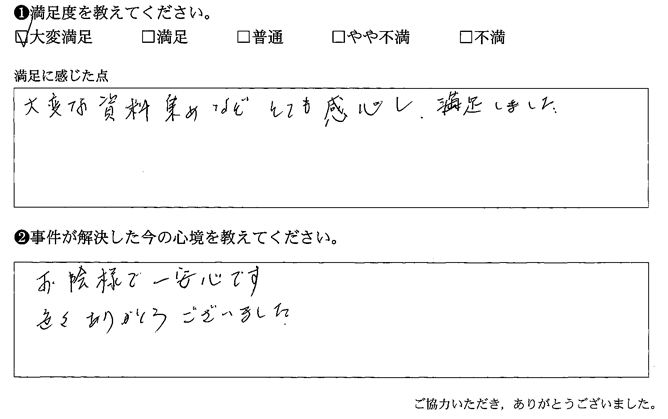 ❶満足度を教えてください。
☑大変満足 □満足 □普通 □やや不満 □不満
満足に感じた点
大変な資料集めなど とても感心し、満足しました。
❷事件が解決した今の心境を教えてください。
お陰様で一安心です
色々ありがとうございました。
ご協力いただき，ありがとうございました。